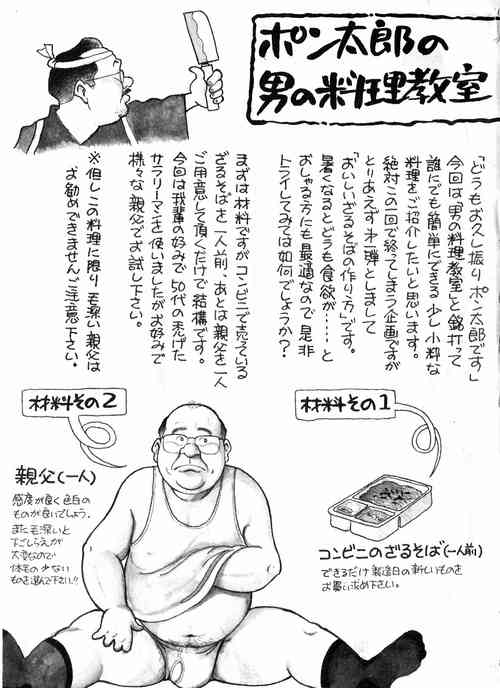 ポン太郎の
男の料理教室
「どうもお久し振りポン太郎です」
今回は「男の料理教室」と銘打って
誰にでも簡単にできる少し小粋な
料理をご紹介したいと思います。
絶対この一回で終ってしまう企画ですが
とりあえず第一弾としまして
「おいしいざるそばの作り方」です。
暑くなるとどうも食欲が……と
おしゃる方にも最適なので是非
トライしてみては如何でしょうか？
まずは材料ですがコンビニで売っている
ざるそばを一人前、あとは親父を一人
ご用意して頂くだけで結構です。
今回は我輩の好みで50代の禿げた
サラリーマンを使いましたがお好みで
様々な親父でお試し下さい。
※但しこの料理に限り毛深い親父は
お勧めできませんご注意下さい。
材料その1
コンビニのざるそば(一人前)
できるだけ製造日の新しいものを
お買い求め下さい。
材料その2
親父(一人)
感度が良く色白の
ものが良いでしょう。
また毛深いと
下ごしらえが
大変なので
体毛の少ない
ものを選んで下さい!!